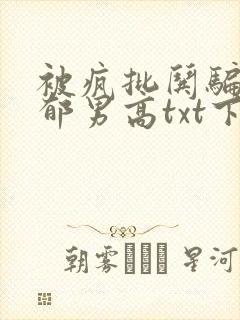 被疯批阴骗
郁男高txt下
朝雾 星河